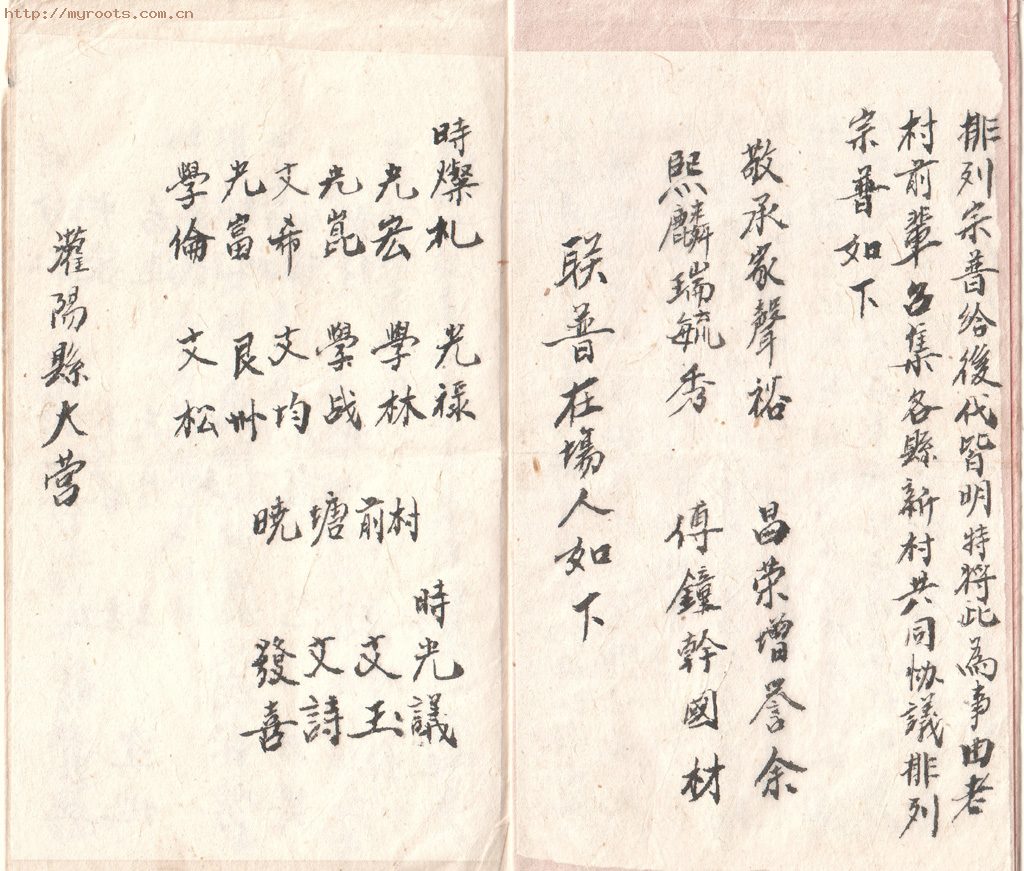 http://myroots.com.cn
排列宗普给後代皆明特将此為事由老
村前輩名集各縣新村共同协議排列
宗普如下
敬承家聲裕 昌荣增誉余
熙麟瑞毓秀 傅鐘幹國材
联普在場人如下
時燦札 光禄 時光議
光宏 學林 村 文玉
光崑 學战 前 文詩
文希 文均 塘 發喜
光富 艮州 曉
學倫 文松
灌陽縣大营